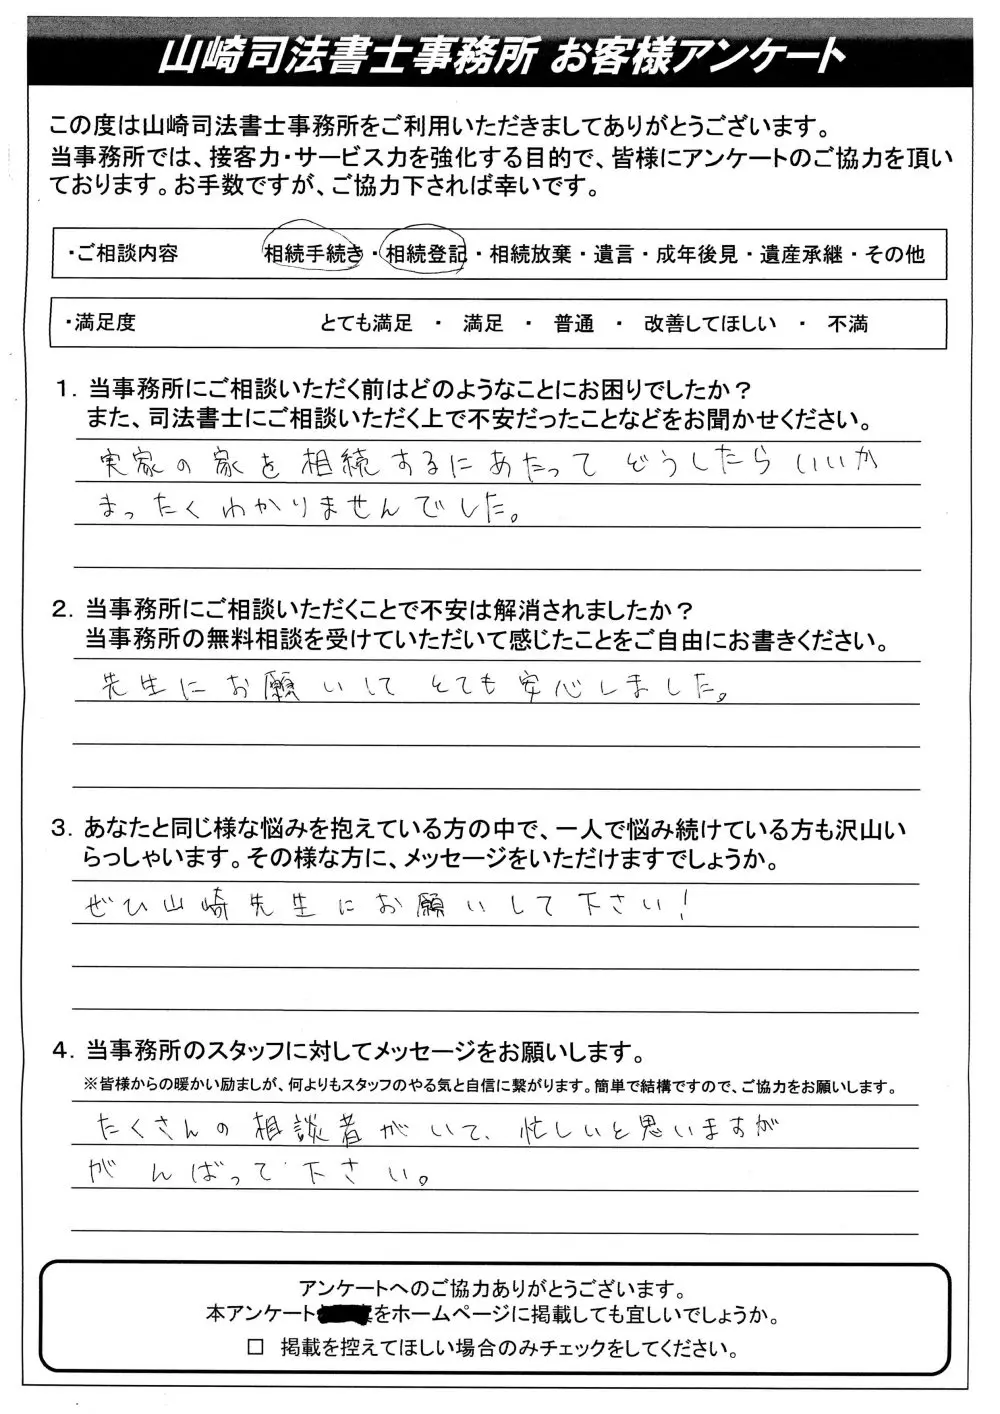 山崎司法書士事務所 お客様アンケート
この度は山崎司法書士事務所をご利用いただきましてありがとうございます。
当事務所では、接客力・サービス力を強化する目的で、皆様にアンケートのご協力を頂い
ております。お手数ですが、ご協力下されば幸いです。
・ご相談内容 相続手続き・相続登記・相続放棄・遺言・成年後見・遺産承継・その他
・満足度 とても満足 ・ 満足 ・ 普通 ・ 改善してほしい ・ 不満
1．当事務所にご相談いただく前はどのようなことにお困りでしたか？
また、司法書士にご相談いただく上で不安だったことなどをお聞かせください。
実家の家を相続するにあたってどうしたらいいか
まったくわかりませんでした。
2．当事務所にご相談いただくことで不安は解消されましたか？
当事務所の無料相談を受けていただいて感じたことをご自由にお書きください。
先生にお願いしてとても安心しました。
3．あなたと同じ様な悩みを抱えている方の中で、一人で悩み続けている方も沢山い
らっしゃいます。その様な方に、メッセージをいただけますでしょうか。
ぜひ山崎先生にお願いして下さい！
4．当事務所のスタッフに対してメッセージをお願いします。
※皆様からの暖かい励ましが、何よりもスタッフのやる気と自信に繋がります。簡単で結構ですので、ご協力をお願いします。
たくさんの相談者がいて、忙しいと思いますが
がんばって下さい。
アンケートへのご協力ありがとうございます。
本アンケート をホームページに掲載しても宜しいでしょうか。
□ 掲載を控えてほしい場合のみチェックをしてください。